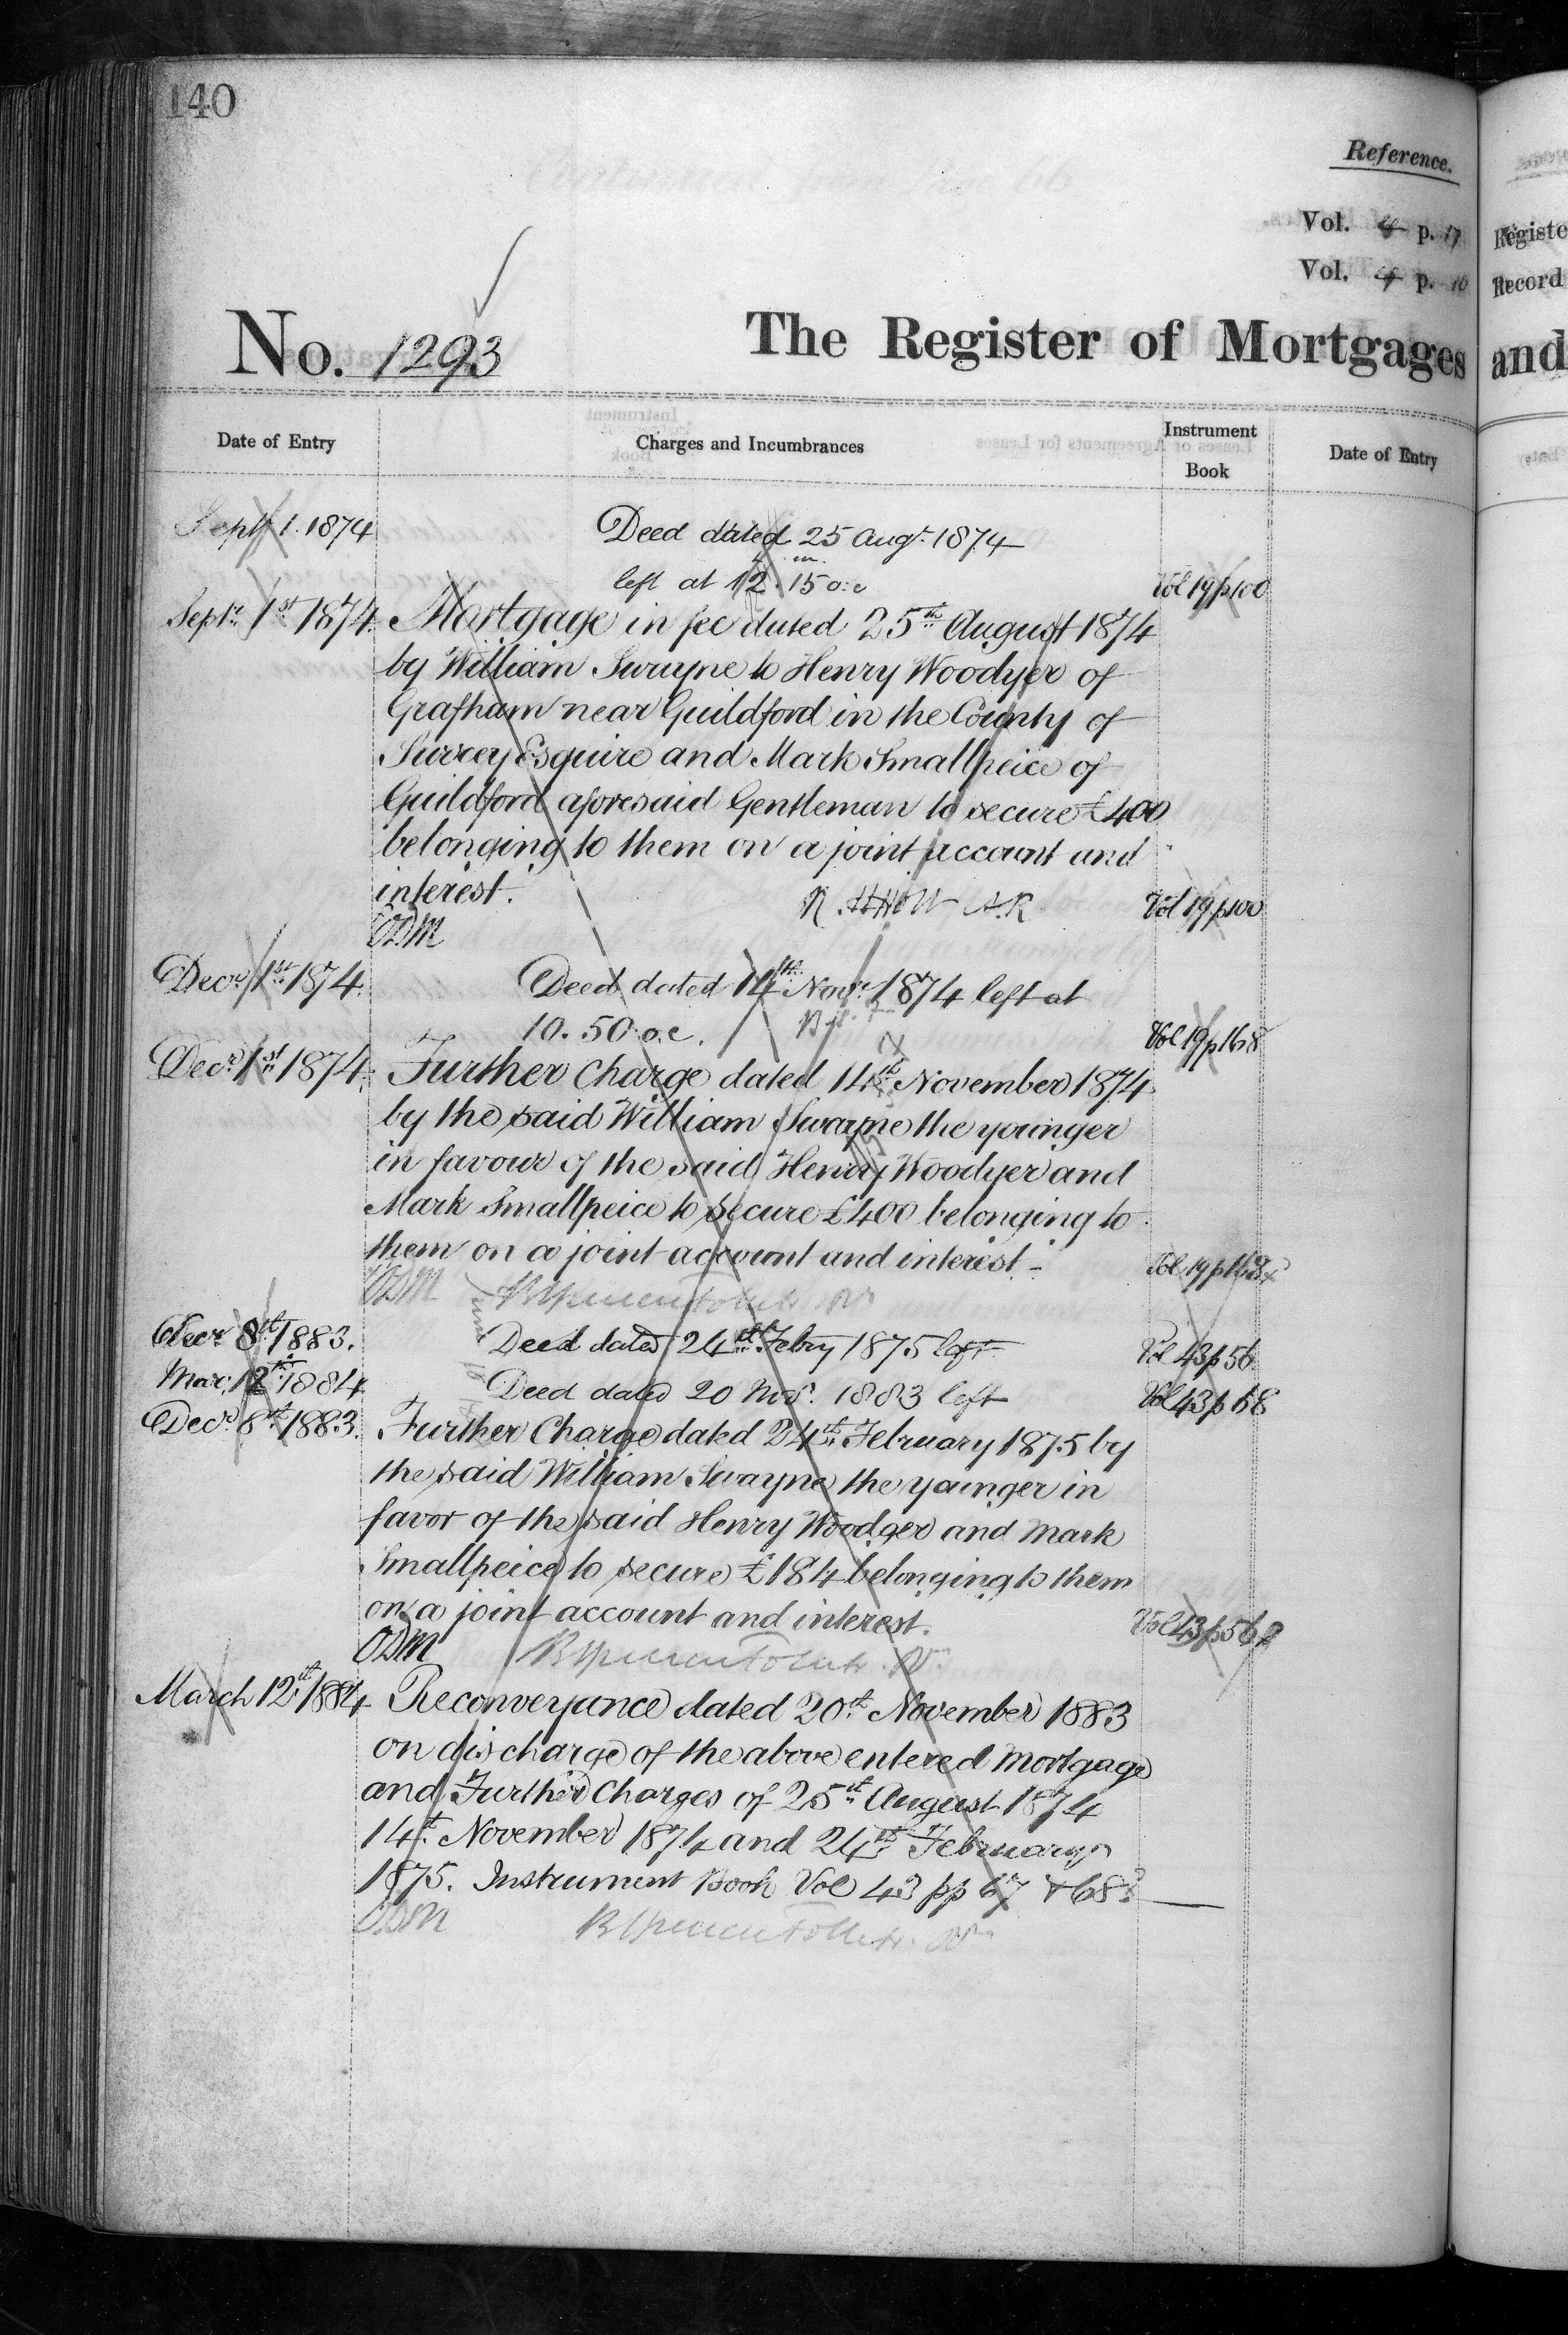 140
Reference.
Vol. 4 p. 17
Vol. 4 p. 10
Registe
Record
No. 1293
The Register of Mortgages and
Date of Entry
Charges and Incumbrances
Instrument
Book
Date of Entry
Sept 1. 1874
Deed dated 25 Augt. 1874
left at 12.15 o:c
Vol 19 p 100
Septr. 1st 1874 Mortgage in fee dated 25th August 1874
by William Swayne to Henry Woodyer of
Grafham near Guildford in the County of
Surrey Esquire and Mark Smallpeice of
Guildford aforesaid Gentleman to secure £400
belonging to them on a joint account and
interest.
A.R
Vol 19 p 100
ODM
Decr. 1st 1874. Deed dated 14th Novr. 1874 left at
10.50 o.c.
Vol 19 p 168
Decr. 1st 1874. Further Charge dated 14th November 1874
by the said William Swayne the younger
in favour of the said Henry Woodyer and
Mark Smallpeice to secure £400 belonging to
them on a joint account and interest.-
Vol 19 p 168
ODM
Decr. 8th 1883. Deed dated 24th Febry 1875 left
Vol 43 p 56
Mar: 12th 1884 Deed dated 20 Nov. 1883 left
Vol 43 p 68
Decr. 8th 1883. Further Charge dated 24th February 1875 by
the said William Swayne the younger in
favor of the said Henry Woodger and Mark
Smallpeice to secure £184 belonging to them
on a joint account and interest.
Vol 43 p 56
ODM
March 12th 1884 Reconveyance dated 20th November 1883
on discharge of the above entered Mortgage
and Further Charges of 25th August 1874
14th November 1874 and 24th February
1875. Instrument Book Vol 43 pp 67 & 68.
ODM